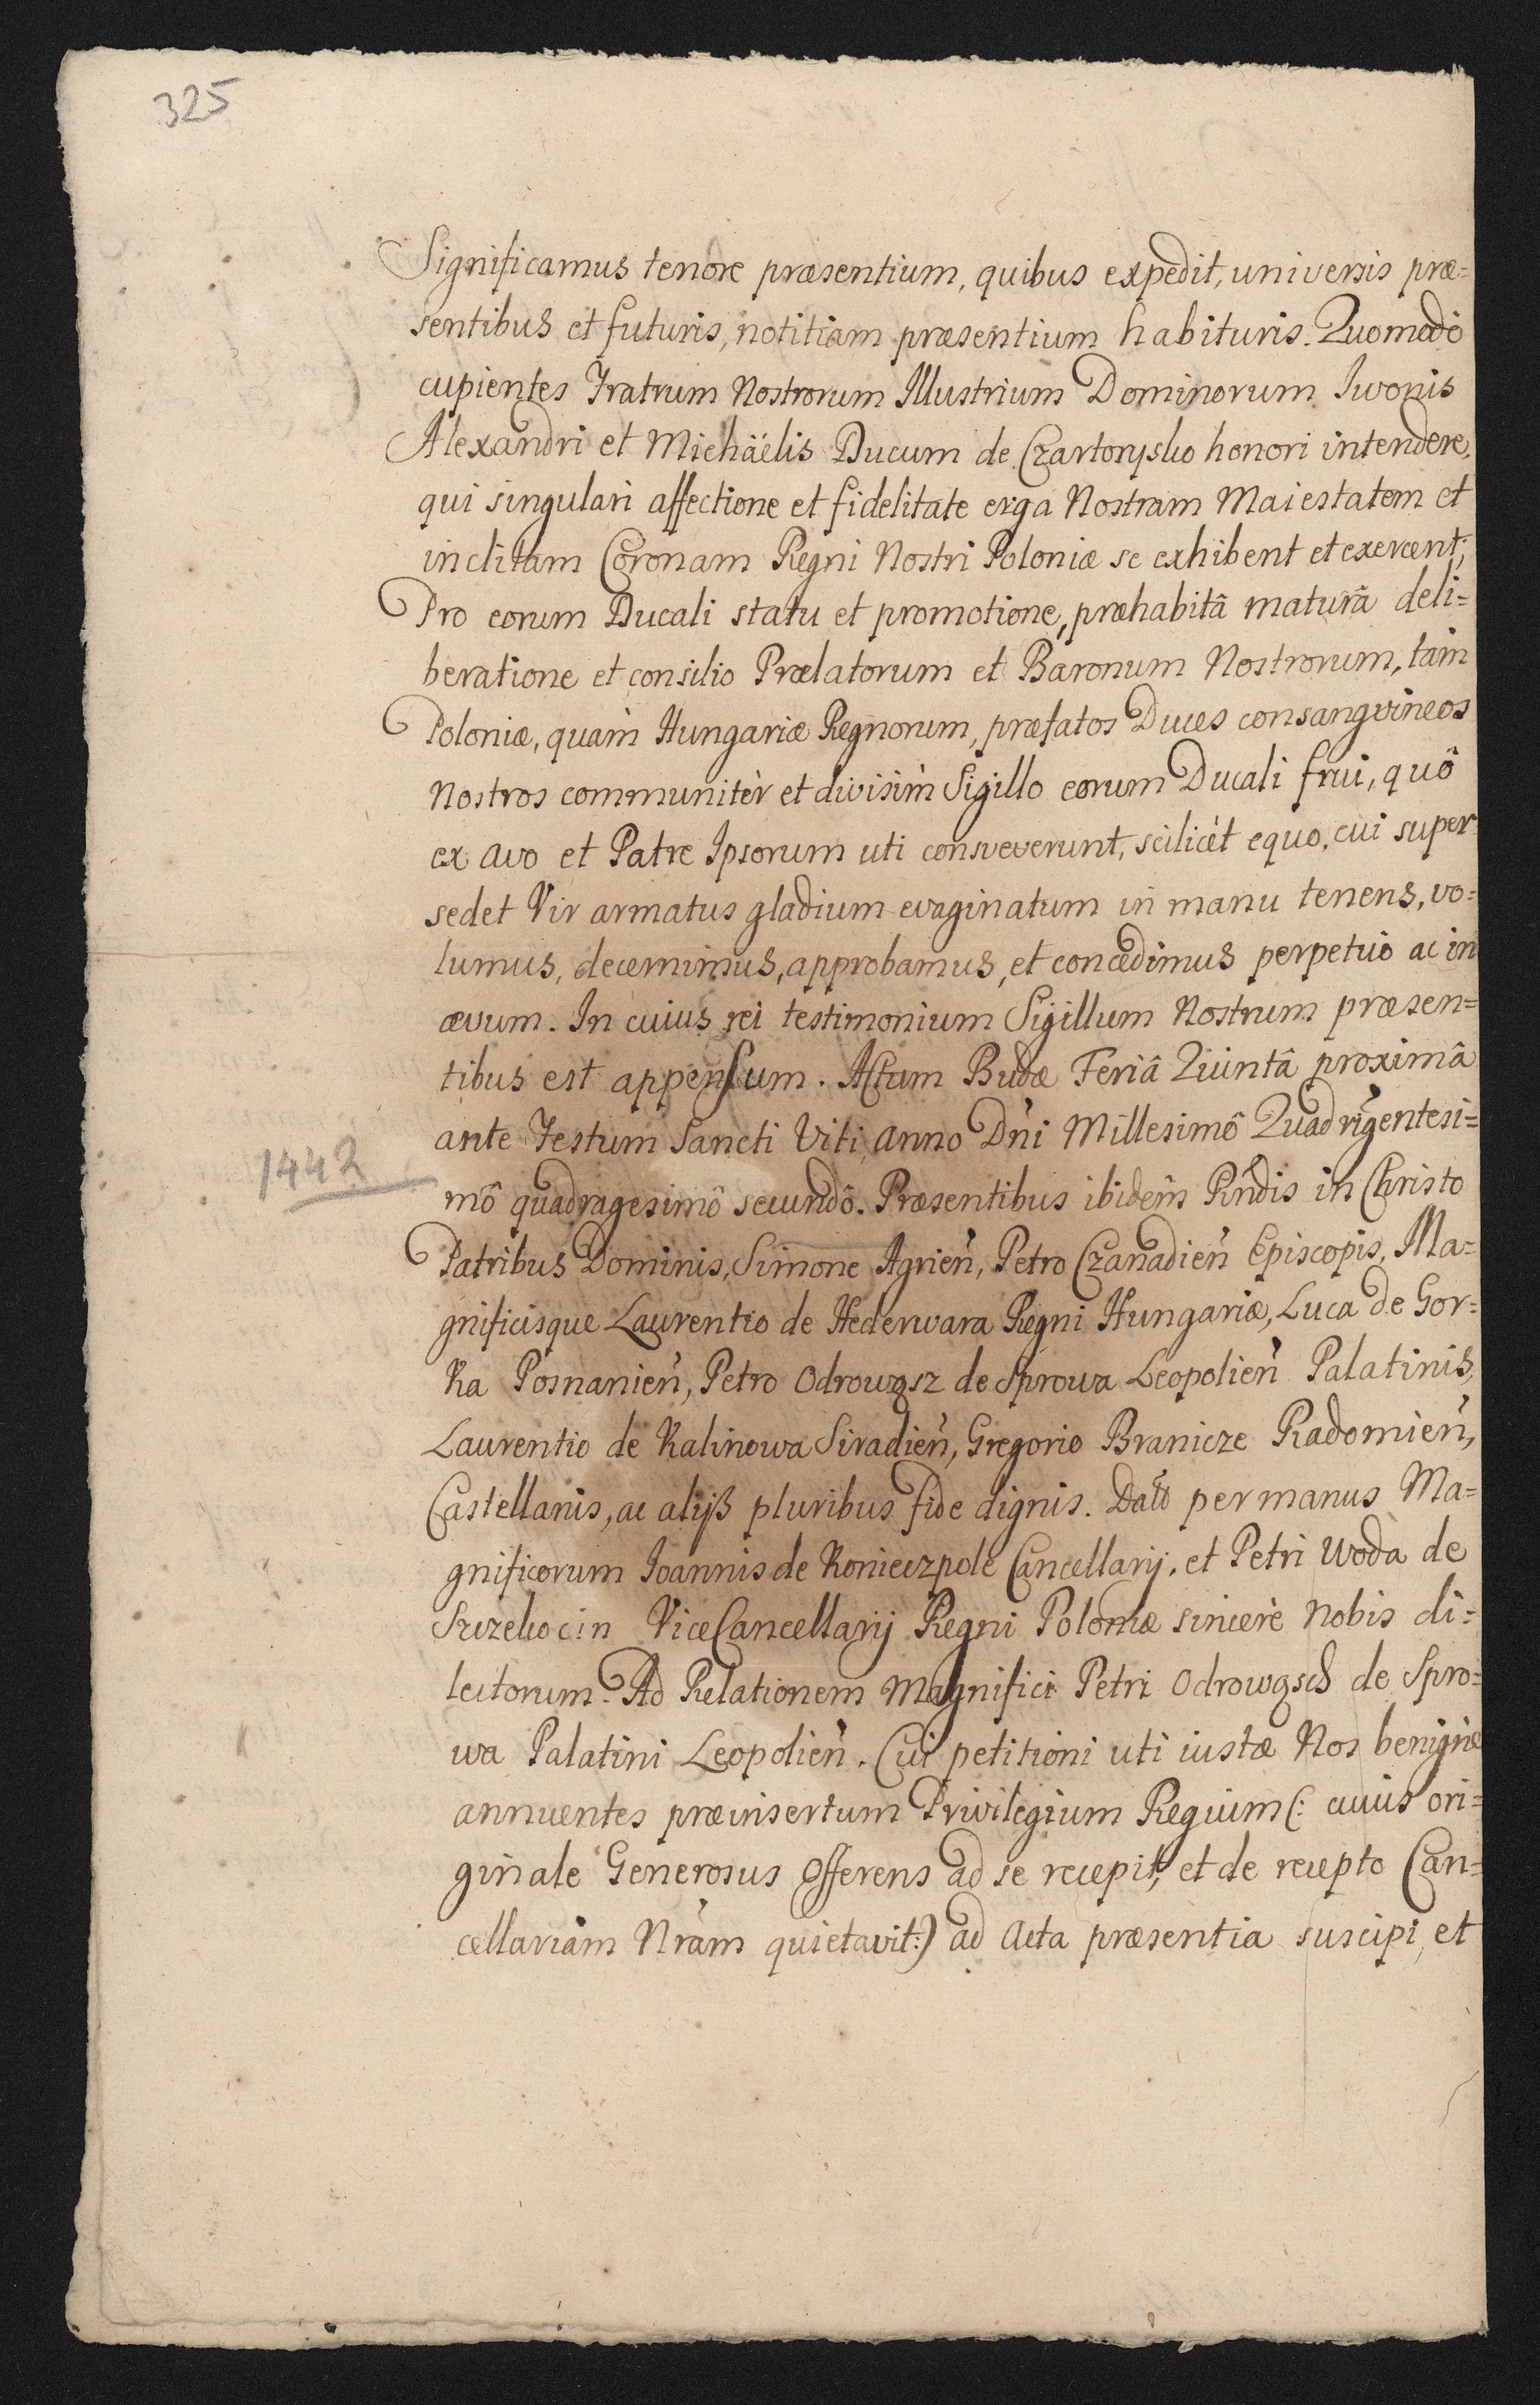 325
Significamus tenore præsentium, quibus expedit, universis præ=
sentibus et futuris, notitiam præsentium habituris. Quomodò
cupientes Fratrum Nostrorum Illustrium Dominorum Iwonis
Alexandri et Michäelis Ducum de Czartorysko honori intendere,
qui singulari affectione et fidelitate erga Nostram Maiestatem et
inclitam Coronam Regni Nostri Poloniæ se exhibent et exercent;
Pro eorum Ducali statu et promotione, præhabitâ maturâ deli=
beratione et consilio Prælatorum et Baronum Nostrorum, tàm
Poloniæ, quàm Hungariæ Regnorum, præfatos Duces consangvineos
Nostros communitèr et divisìm Sigillo eorum Ducali frui, quô
ex Avo et Patre Ipsorum uti consveverunt, scilicèt equo, cui super
sedet Vir armatus gladium evaginatum in manu tenens, vo=
lumus, decernimus, approbamus, et concedimus perpetuò ac in
ævum. In cuius rei testimonium Sigillum Nostrum præsen=
tibus est appensum. Actum Budæ Feriâ Quintâ proximâ
ante Festum Sancti Viti, Anno Dn̄i Millesimô Quadringentesi=
1442
mô quadragesimô secundô. Præsentibus ibidèm Rn̄dis in Christo
Patribus Dominis, Simone Agrien̄, Petro Czanadien̄ Episcopis, Ma=
gnificisque Laurentio de Hederwara Regni Hungariæ, Luca de Gor=
ka Posnanien̄, Petro Odrowąsz de Sprowa Leopolien̄ Palatinis,
Laurentio de Kalinowa Siradien̄, Gregorio Branicze Radomien̄,
Castellanis, ac alijs pluribus fide dignis. Datt per manus Ma=
gnificorum Ioannis de Konieczpole Cancellarij, et Petri Woda de
Szczekocin ViceCancellarij Regni Poloniæ sincerè Nobis di=
lectorum. Ad Relationem Magnifici Petri Odrowąsch de Spro=
wa Palatini Leopolien̄. Cui petitioni uti iustæ Nos benignè
annuentes præinsertum Privilegium Regium (: cuius ori=
ginale Generosus Offerens ad se recepit, et de recepto Can=
cellariam Nr̄am quietavit:) ad Acta præsentia suscipi, et